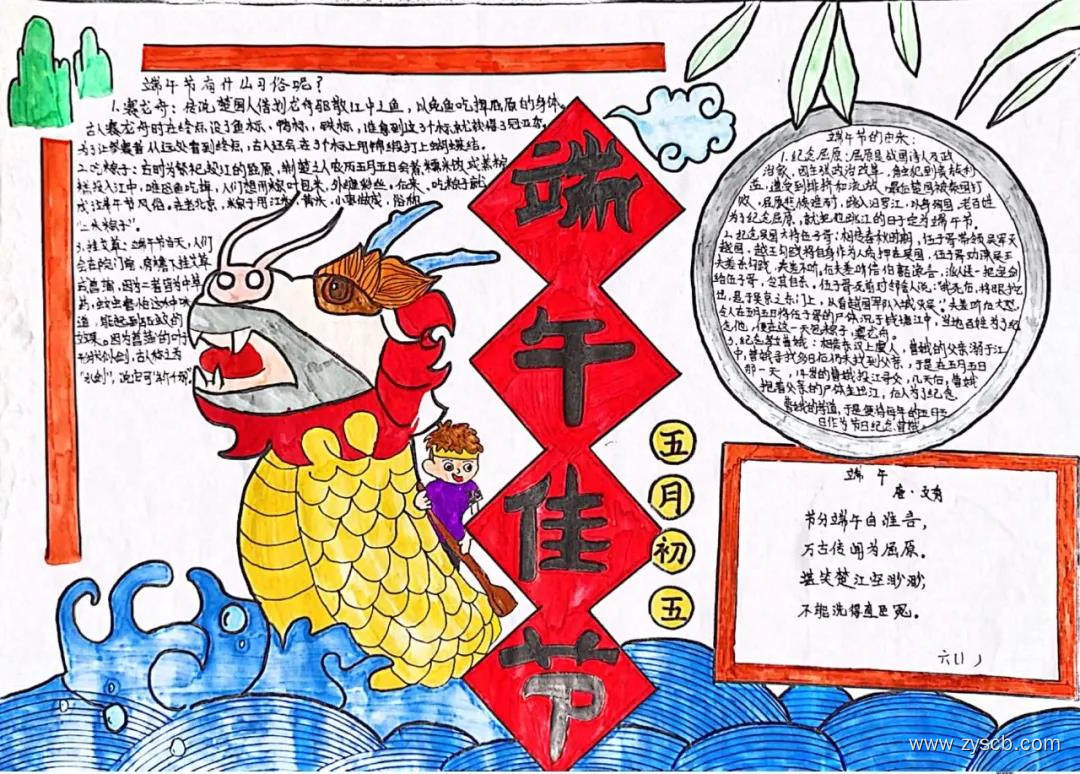 端午节有什么习俗呢?
1.赛龙舟:传说楚国人借划龙舟驱散江中之鱼,以免鱼吃掉屈原的身体。
古人赛龙舟时在终点设了鱼标、鸭标、铁标,谁拿到这3个标就获得了冠亚季。
为了让参赛者从远处看到终点,古人还会在3个标上用绸缎打上蝴蝶结。
2.吃粽子:古时为祭祀投江的屈原,荆楚之人农历五月五日会煮糯米饭或蒸粽
糕投入江中,唯恐鱼吃掉,人们想用粽叶包米,外缠彩丝。后来,吃粽子就
成了端午节风俗。在老北京,粽子用江米,黄米,小枣做成,俗称
"江米粽子"。
3.挂艾草:端午节当天,人们
会在院门前,房檐下挂艾草
或菖蒲,因为二者皆为中草
药,蚊虫害怕这种味
道,能起到驱蚊的
效果。因为菖蒲的叶子
形状似剑,古人称之为
"水剑",说它可"斩千邪"
端午佳节
五月初五
端午节的由来:
1.纪念屈原:屈原是战国诗人及政
治家,因主张政治改革,触犯到贵族利
益,遭受到排挤和流放,最后楚国被秦国打
败,屈原悲愤难耐,跳入汨罗江,以身殉国,老百姓
为了纪念屈原,就把他跳江的日子定为端午节。
2.纪念吴国大将伍子胥:相传春秋时期,伍子胥带领吴军灭
越国,越王勾践将自身作为人质押在吴国,伍子胥劝谏吴王
夫差杀勾践,夫差不听。后夫差听信伯嚭谗言,派人送一把宝剑
给伍子胥,令其自杀,伍子胥死前对邻舍人说:"我死后,将眼挖
出,悬于吴京之东门上,从看越国军队入城灭吴。"夫差听后大怒,
令人在五月五日将伍子胥的尸体沉于钱塘江中,当地百姓为了纪
念他,便在这一天包粽子,赛龙舟。
3.纪念孝女曹娥:相传东汉上虞人,曹娥的父亲溺于江
中,曹娥寻找多日后仍未找到父亲,于是在五月五日
那一天,14岁的曹娥投江寻父,几天后,曹娥
抱着父亲的尸体浮出江,后人为了纪念
曹娥的孝道,于是便将每年的五月五
日作为节日纪念曹娥。
端午
唐·文秀
节分端午自谁言,
万古传闻为屈原。
堪笑楚江空渺渺,
不能洗得直臣冤。
六(1)
www.zyscb.com